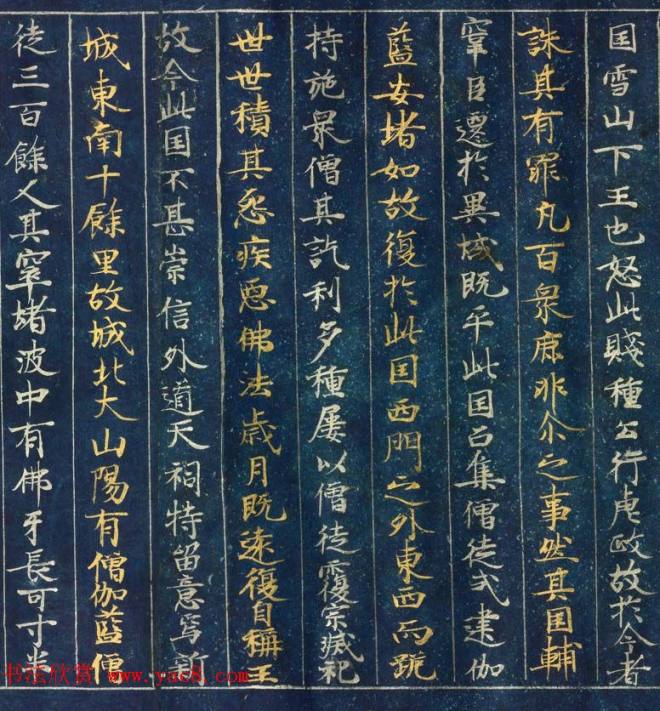 囯雪山下王也怒此賤種公行虐政故於今者
誅其有罪凡百衆庶非尒之事然其囯輔
宰臣遷於異域既平此囯召集僧徒式建伽
藍安堵如故復於此囯西門之外東西而跪
持施衆僧其訖利多種屢以僧徒覆宗滅祀
世世積其怨疾惡佛法歲月既遠復自稱王
故今此囯不甚崇信外道天祠特留意焉新
城東南十餘里故城北大山陽有僧伽藍僧
徒三百餘人其窣堵波中有佛牙長可寸半
书法欣赏 www.yac8.com